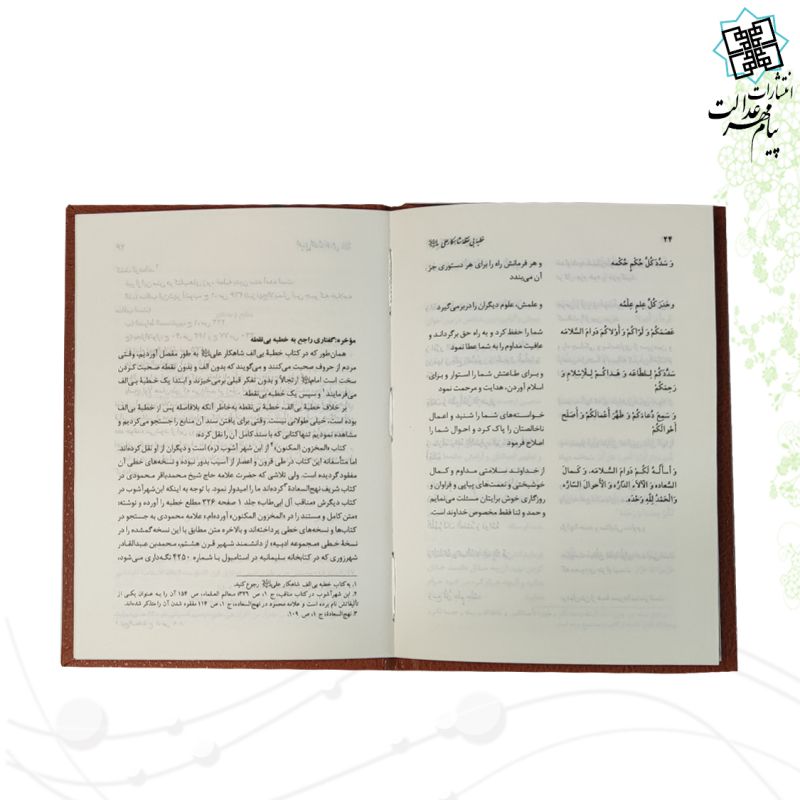 انتشارات
پیام مهر عدالت
۲۴
خطبه بی نقطه شاهکار علی
وَ سَدَّدَ كُلَّ حُكْمٍ حُكْمُه
و هر فرمانش راه را برای هر دستوری جز
آن می‌بندد
وحَدَرَ كُلَّ عِلمٍ عِلْمُه
و علمش، علوم دیگران را دربر می‌گیرد
عَصَمَكُمْ وَ لَوَّاكُمْ وَ أَوْلاكُمْ دَوامَ السَّلامَه
شما را حفظ کرد و به راه حق برگرداند و
عافیت مداوم را به شما عطا نمود
سَدَّدَكُمْ لِـلطَّاعَه وَ هَـداكُـمْ لِـلْإسْلامِ وَ
رَحِمَكُمْ
و برای طـاعتش شما را استوار و برای
اسلام آوردن، هدایت و مرحمت نمود
وَ سَمِعَ دُعاءَكُمْ وَ طَهَّرَ أَعْمالَكُمْ وَ أَصْلَحَ
أَحْوالَكُمْ
خواسته‌های شما را شنید و اعمال
ناخالصتان را پاک کرد و احوال شما را
اصلاح فرمود
وَ أَسأَلُهُ لَكُمْ دَوامَ السَّلامَه، وَ كَمالَ
السَّعاده وَ الْآلاءَ الدّارَّه، وَ الْأَحوالَ السّارَّه،
وَالْحَمْدُ لِلّهِ وَحْدَه.
از خداوند سلامتی مداوم و کمال
خوشبختی و نعمت‌های پیاپی و فراوان و
روزگاری خوش برایتان مسئلت می‌نمایم
و حمد و ثنا فقط مخصوص خداوند است.
مؤخره:گفتاری راجع به خطبه بی‌نقطه
همان‌طور که در کتاب خطبهٔ بی‌الف شاهکار علی به طور مفصل آوردیم، وقتی
مردم از حروف صحبت می‌کنند و می‌گویند که بدون الف و بدون نقطه صحبت کردن
سخت است امام ارتجالاً و بدون تفکر قبلی برمی‌خیزند و ابتدا یک خطبهٔ بی‌الف
می‌فرمایند۱ و سپس یک خطبه بی‌نقطه.
بر خلاف خطبهٔ بی‌الف، خطبهٔ بی‌نقطه به‌خاطر آنکه بلافاصله پس از خطبهٔ بی‌الف
بوده است، خیلی طولانی نیست. وقتی برای یافتن سند آن منابع را جستجو می‌کردیم و
مشاهده نمودیم تنهاکتابی که با سند کامل آن را نقل کرده:
کتاب «المخزون المکنون»۲ از ابن شهر آشوب (ره) است و دیگران از او نقل کرده‌اند.
اما متأسفانه این کتاب در طی قرون و اعصار از آسیب بدور نبوده و نسخه‌های خطی آن
مفقود گردیده است. ولی تلاشی که حضرت علامه حاج شیخ محمدباقر محمودی در
کتاب شریف نهج‌السعادة۳ کرده‌اند ما را امیدوار نمود. با توجه به اینکه ابن‌شهرآشوب در
کتاب دیگرش «مناقب آل ابی‌طالب» جلد ۱ صفحه ۳۲۶ مطلع خطبه را آورده و نوشته:
«متن کامل و مستند را در «المخزون المکنون» آورده‌ام» علامه محمودی به جستجو در
کتاب‌ها و نسخه‌های خطی پرداخته‌اند و بالاخره متن مطابق با این نسخه گمشده» را در
نسخهٔ خطی «مجموعه ادبیه» از دانشمند شهیر قرن هشتم، محمدبن عبدالقادر
شهرزوری که در کتابخانه سلیمانیه در استامبول با شماره ۴۲۵۰ نگه‌داری می‌شود،
۱. به کتاب خطبه بی الف شاهکار علی رجوع کنید.
۲. ابن شهرآشوب در کتاب مناقب، ج ۱، ص ۳۲۶؛ معالم العلماء، ص ۱۵۴ آن را به عنوان یکی از
تألیفاتش نام برده است و علامه محمودی در نهج‌السعادة، ج ۱، ص ۱۱۴ مفقود شدن آن را متذکر شده‌اند.
۳. نهج‌السعادة؛ ج ۱، ص ۱۰۹.